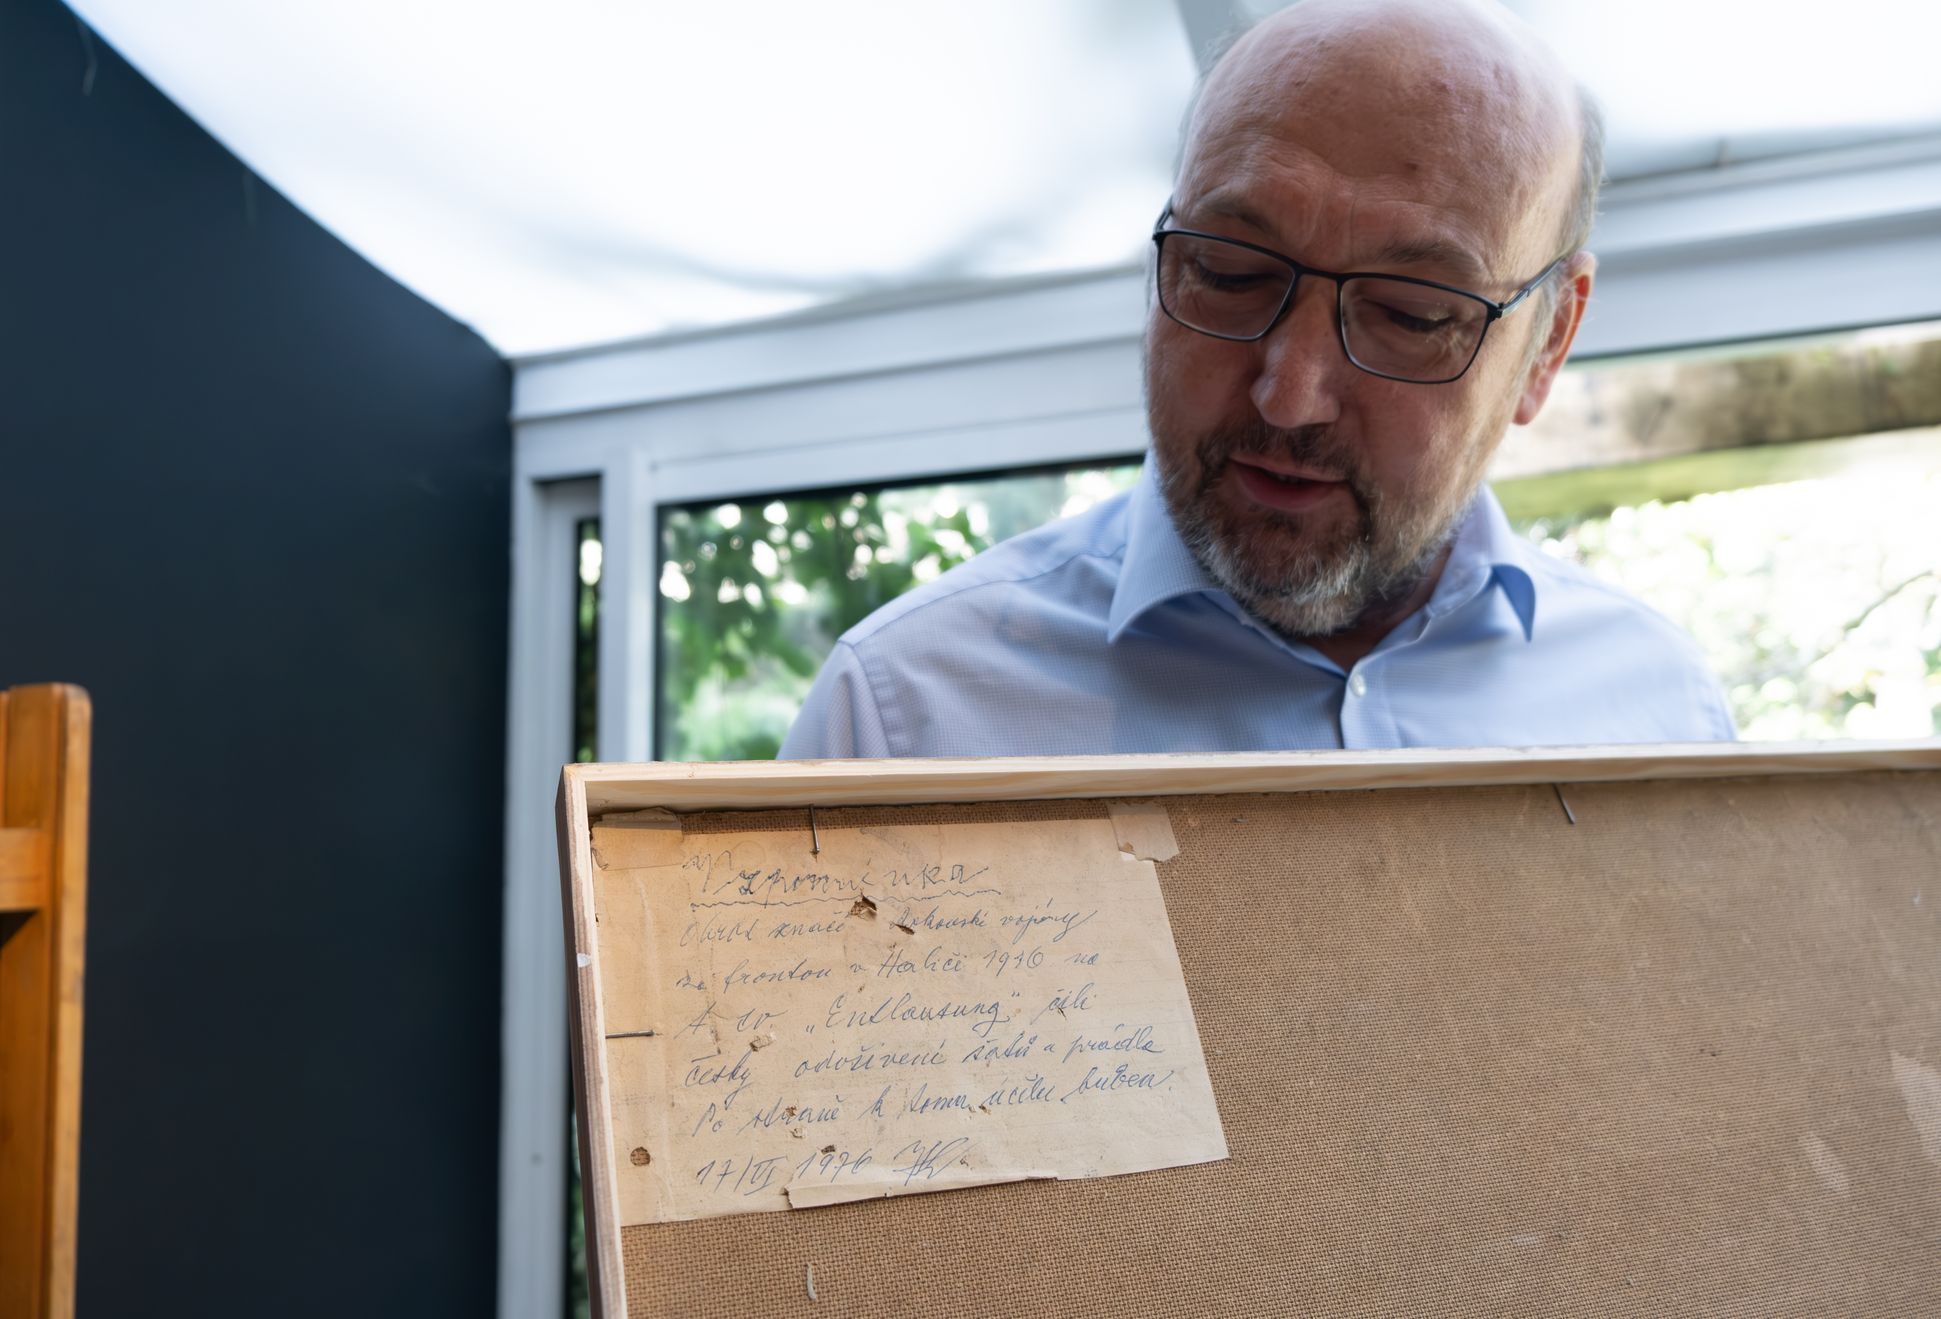 Vzpomínka
Obraz značí rakouské vojíny
za frontou v Haliči 1916 na
t. zv. „Entlausung" čili
česky odvšivení šatů a prádla
Po straně k tomu účelu buben.
17/III 1976